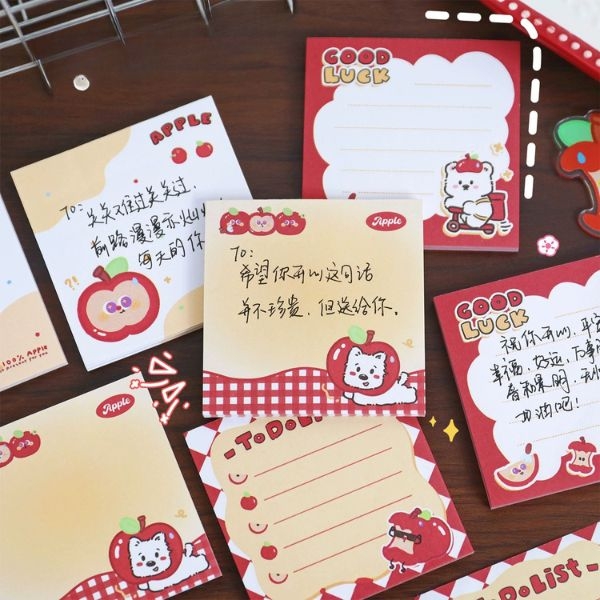 GOOD
LUCK
APPLE
To:
关关难过关关过,
前路漫漫亦灿灿
每天的你
Apple
To:
希望你开心这句话
并不珍贵,但送给你。
GOOD
LUCK
祝你开心,平安
幸福,好运,万事
春和景明,无忧
加油吧!
100% Apple
a present for you
Apple
-ToDoList-
-ToDoList-